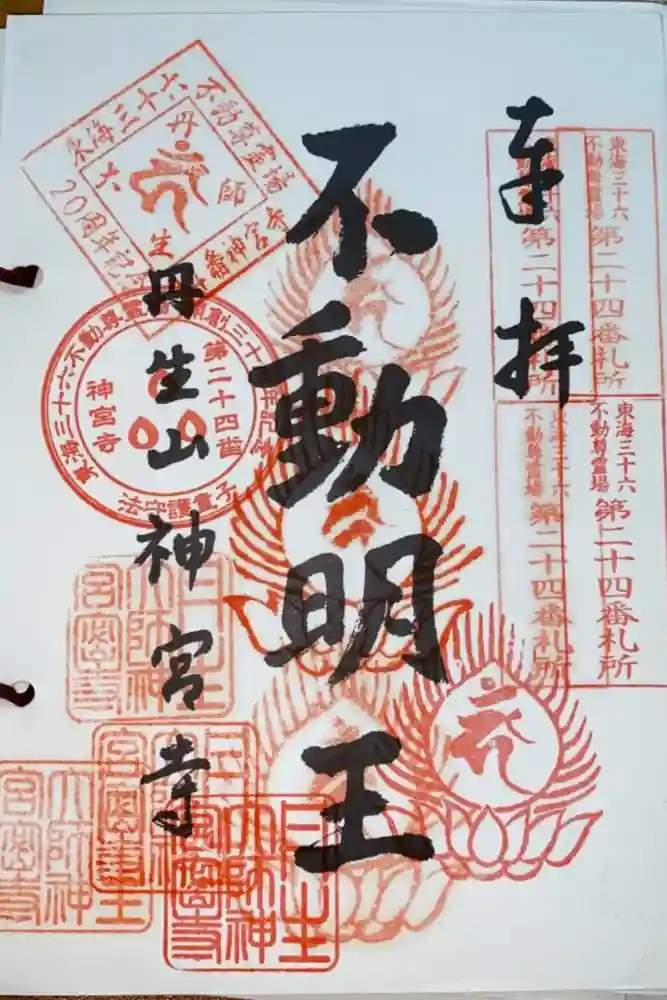 奉拝
東海三十六
不動尊霊場
第二十四番札所
東海三十六
不動尊霊場
第二十四番札所
東海三十六
不動尊霊場
第二十四番札所
東海三十六
不動尊霊場
第二十四番札所
不動明王
丹生山
神宮寺
東海三十六不動尊霊場
20周年記念
丹生大師
番神宮寺
第二十四番
神宮寺
法守護童子
丹生大師神宮寺